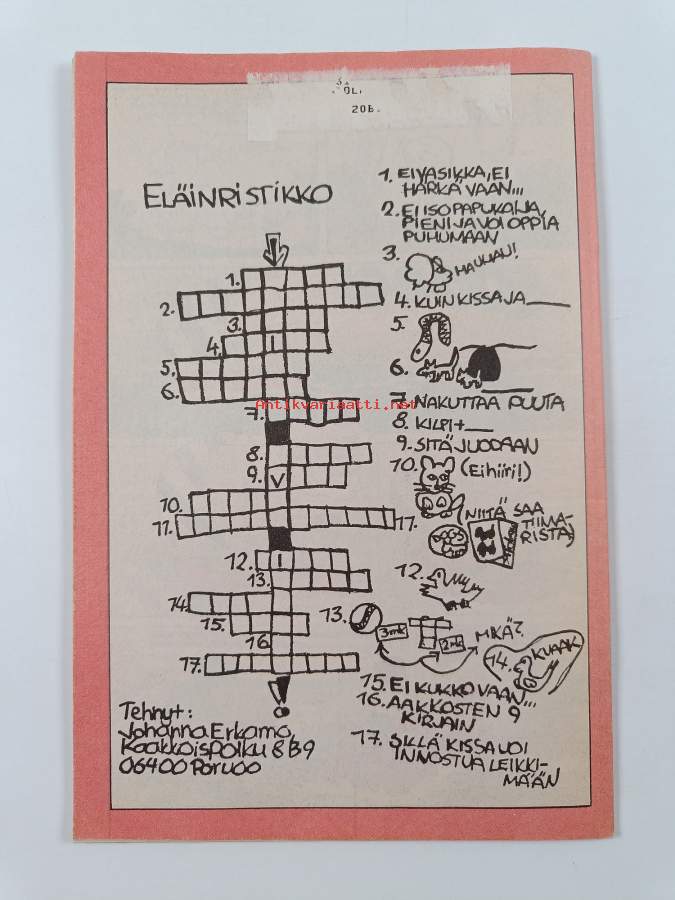 OL.
20b.
ELÄINRISTIKKO
1. EI VASIKKA, EI
HÄRKÄ VAAN...
2. EI ISO PAPUKAIJA,
PIENI JA VOI OPPIA
PUHUMAAN
3.
HAUHAU!
4. KUIN KISSA JA
5.
6.
7. NAKUTTAA PUUTA
8. KILPI+
9. SITÄ JUODAAN
10. (Ei hiiri!)
11. (NIITÄ SAA
TIIMA-
RISTA)
12.
13.
3mk
2mk
MIKÄ?
14. KVAAK
15. EI KUKKO VAAN...
16. AAKKOSTEN 9
KIRJAIN
17. SILLÄ KISSA VOI
INNOSTUA LEIKKI-
MÄÄN
1.
2.
3.
4. I
5.
6.
7.
8.
9. V
10.
11.
12. I
13.
14.
15.
16.
17.
Tehnyt:
Johanna Erkamo,
Kaakkoispolku 8 B 9
06400 Porvoo
Antikvariaatti.net